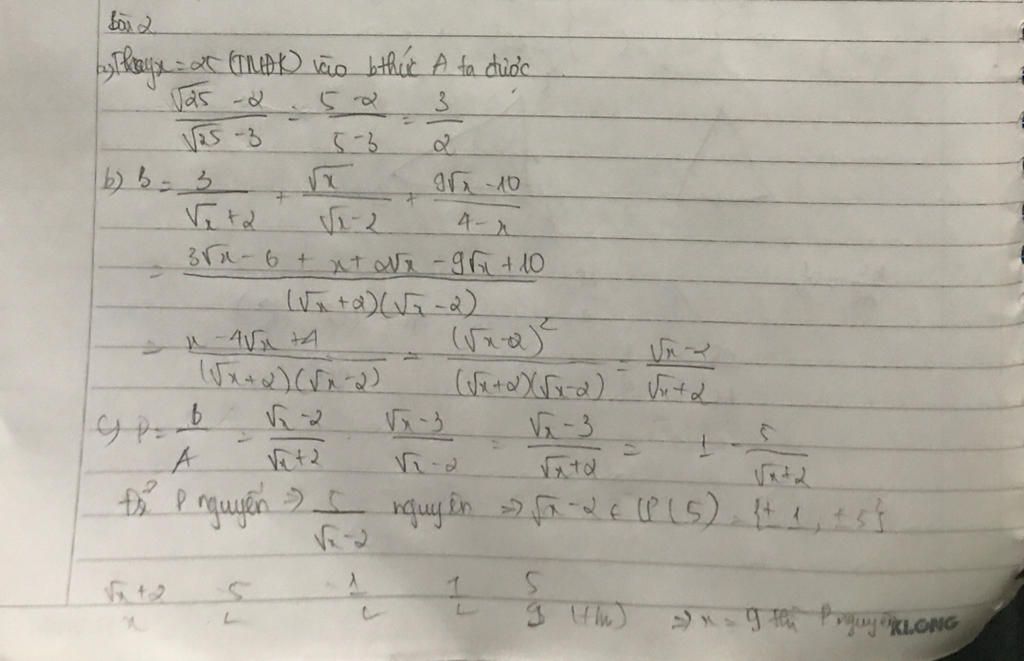 Bài 2
a) Thay x = 25 (TMĐK) vào bthức A ta được
(√25 - 2)/(√25 - 3) = (5 - 2)/(5 - 3) = 3/2
b) B = 3/(√x + 2) + √x/(√x - 2) + (9√x - 10)/(4 - x)
= (3√x - 6 + x + 2√x - 9√x + 10)/((√x + 2)(√x - 2))
= (x - 4√x + 4)/((√x + 2)(√x - 2)) = (√x - 2)²/((√x + 2)(√x - 2)) = (√x - 2)/(√x + 2)
c) P = B/A = (√x - 2)/(√x + 2) · (√x - 3)/(√x - 2) = (√x - 3)/(√x + 2) = 1 - 5/(√x + 2)
Để P nguyên => 5/(√x - 2) nguyên => √x - 2 ∈ Ư(5) = {± 1, ± 5}
√x + 2 5 1 1 5
x L L L 9 (tm) => x = 9 thì P nguyên
KLONG